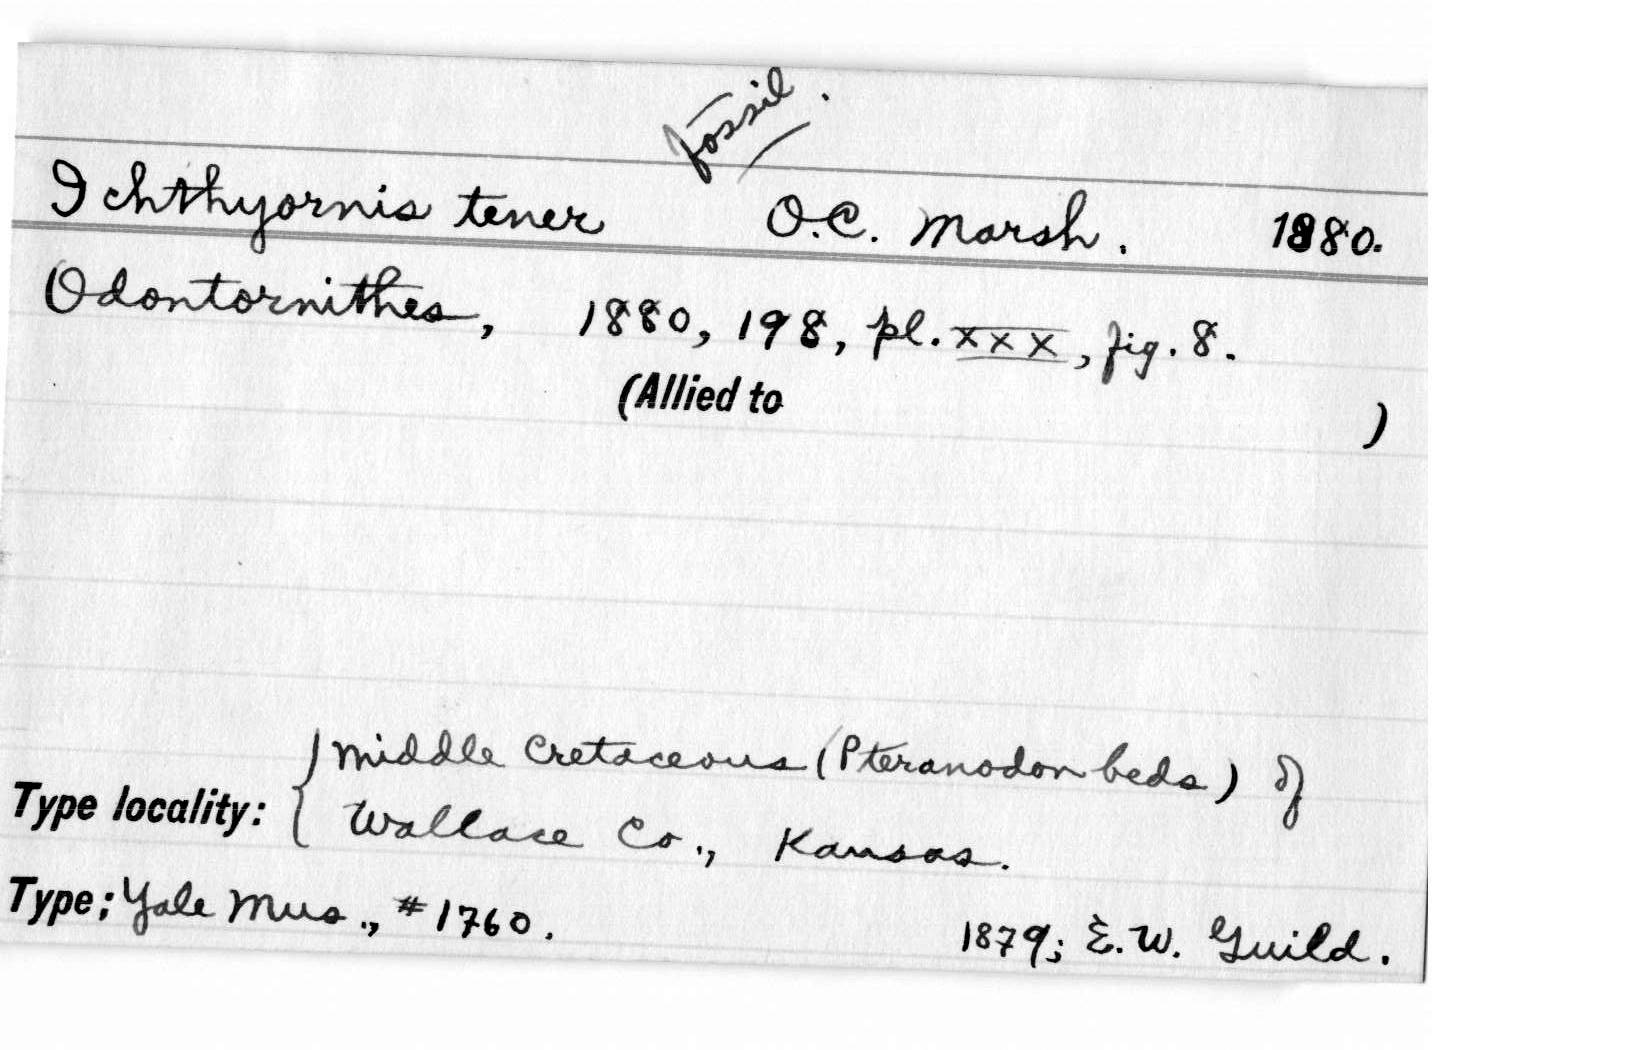 fossil.
Ichthyornis tener O.C. Marsh. 1880.
Odontornithes, 1880, 198, pl. XXX, fig. 8.
(Allied to )
Type locality: { Middle Cretaceous (Pteranodon beds) of
Wallace Co., Kansas.
Type; Yale Mus., #1760. 1879; E.W. Guild.